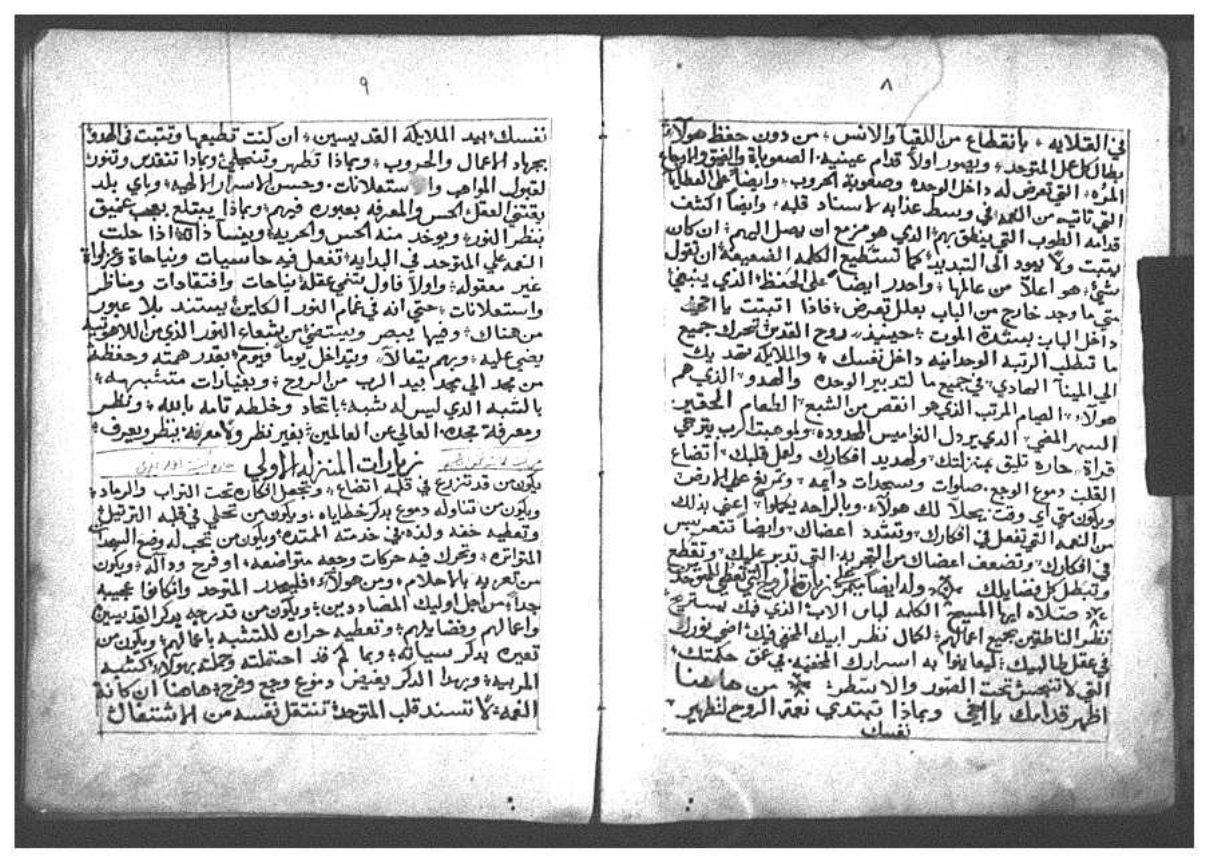 ٨
في القلايه ÷ بانقطاع من اللقيا والانس ÷ من دون حفظ هولاء
بطال كل عمل المتوحد ÷ ويصور اولاً قدام عينيه الصعوبات والضيق والاوجاع
المره ÷ التي تعرض له داخل الوحده وصعوبة الحروب ÷ وايضاً على العطايا
التي تاتيه من النعمه في وسط عذابه لاسناد قلبه ÷ وايضاً اكشف
قدامه الطوب التي ينطق بهم الذي هو مزمع ان يصل اليهم ÷ ان كان
يثبت ولا يعود الى التبديد ÷ كما تستطيع الكلمه الضعيفه ان تقول
شي ÷ هو اعلاً من عالمها ÷ واحدر ايضاً على الحفظ الذي ينبغي
متي ما وجد خارج من الباب بعلل تعرض ÷ فاذا اتبتت يا اخي
داخل الباب بمشدة الموت ÷ حينيذ روح القدس تحرك جميع
ما تطلب الرتبه الوحدانيه داخل نفسك ÷ والملايكه تقديك
الي المينا الهادي ÷ في جميع ما لتدبير الوحده والهدو ÷ الذي هم
هولاء ÷ الصيام المرتب الذي هو انقص من الشبع ÷ الطعام الحقير
السهر المضي ÷ الذي يرذل النواميس المحدوده ÷ ولموهبة الرب يترجي
قراة حاره تليق بمنزلتك ÷ ولهديد افكارك ولعل قلبك ÷ اتضاع
القلب دموع الوجع ÷ صلوات وسجدات دايمه ÷ وتمريغ على الارض
ويكون متي اي وقت يحلاً لك هولاء ÷ وبالراحه يكملوا ÷ اعني بذلك
من النعمه التي تفعل في افكارك ÷ وتشدد اعضاك ÷ وايضاً تتعربس
في افكارك ÷ وتضعف اعضاك من التجربه التي تدبر عليك ÷ وتقطع
وتبطل كل فضايلك ÷ وله ايضاً يمر على زيارة الروح التي تعطي للمتوحد
صلاه ايها المسيح الكلمه لباس الاب الذي فيك يستريح
نظر الناطقين بجميع اعمالهم ÷ لكال نظر ابيك المخفي فيك ÷ اضي نورك
في عقل طالبيك ÷ ليعاينوا به اسرارك المخفيه في عمق حكمتك ÷
التي لا تنحبس تحت الصور والاسطر ÷ من هاهنا
اظهر قدامك يا اخي وبماذا تبتدي نعمة الروح لتطهير ÷
نفسك
٩
نفسك ÷ بيد الملايكة القديسين ÷ ان كنت تطيعها وتتبت في الهدو
بجهاد الاعمال والحروب ÷ وبماذا تطهر وتنجلي ÷ وبماذا تتقدس وتنور
لقبول المواهب والاستعلانات ÷ وحسن الاسرار الالهيه ÷ وباي بلد
يقتني العقل الحس والمعرفه بعبوره فيهم ÷ وبماذا يبتلع بعجب عميق
بنظر النور ÷ ويوخد منه الحس والحريه ÷ وينسا ذاته ÷ اذا حلت
النعمه علي المتوحد في البدايه ÷ تفعل فيه حاسيات ونياحاة وعزاواة
غير معقوله ÷ واولاً فاول تنمي عقله ÷ بنياحات وافتقادات ومناظر
واستعلانات ÷ حتي انه في غمام النور الكاين يستند بلا عبور
من هناك ÷ وفيها يبصر ويستضي من شعاع النور الذي من اللاهوتيه
يضي عليه ÷ وبهم يتعالا ÷ ويتداخل يوماً فيوم ÷ بقدر همته وحفظه
من مجد الي مجد ÷ بيد الرب من الروح ÷ وبغيارات متشبهه ÷
بالشبه الذي ليس له شبه ÷ باتحاد وخلطه تامه بالله ÷ ونظر
ومعرفة مجده العالي عن العالمين ÷ بغير نظر ولا معرفه ينظر ويعرف ÷
زيارات المنزله الاولي
يكون من قد تتزرع في قلبه اتضاع ÷ وتجعل افكاره تحت التراب والرماد ÷
ويكون من تناوله دموع بذكر خطاياه ÷ ويكون من تحلي في قلبه الترتيل ÷
وتعطيه خفه ولذه في خدمته الممتده ÷ ويكون من تحبب له وضع السجدات
المتواتره ÷ وتحرك فيه حركات وجعه متواضعه ÷ او فرح وداله ÷ ويكون
من تعزيه بالاحلام ÷ ومن هولاء ÷ فليحدر المتوحد وانكانوا عجيبه
جداً ÷ من اجل اوليك المضاددين ÷ ويكون من قد رجه بذكر القديسين
واعمالهم وفضايلهم ÷ وتعطيه حراره للتشبه باعمالهم ÷ ويكون من
تعيره بذكر سياته ÷ وبما كم قد احتملته وحملته بهولاء ÷ كشبه
المربيه ÷ وبهذا الذكر يفيض دموع وجع وفرح ÷ هاهنا ان كانة
النعمه ÷ لا تسند قلب المتوحد ÷ تنتقل نفسه من الاشتغال